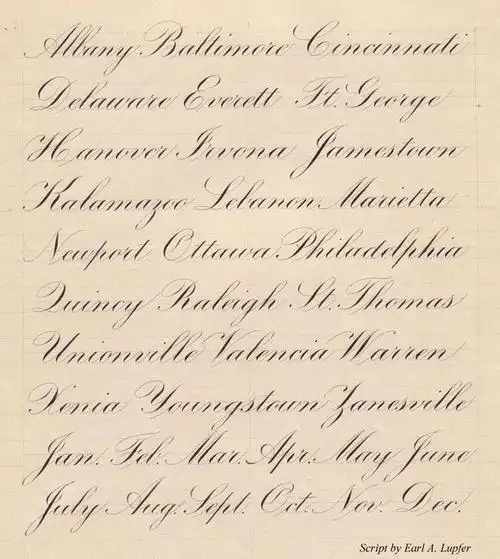 Albany Baltimore Cincinnati
Delaware Everett Ft. George
Hanover Irvona Jamestown
Kalamazoo Lebanon Marietta
Newport Ottawa Philadelphia
Quincy Raleigh St. Thomas
Unionville Valencia Warren
Xenia Youngstown Zanesville
Jan. Feb. Mar. Apr. May June
July Aug. Sept. Oct. Nov. Dec.
Script by Earl A. Lupfer